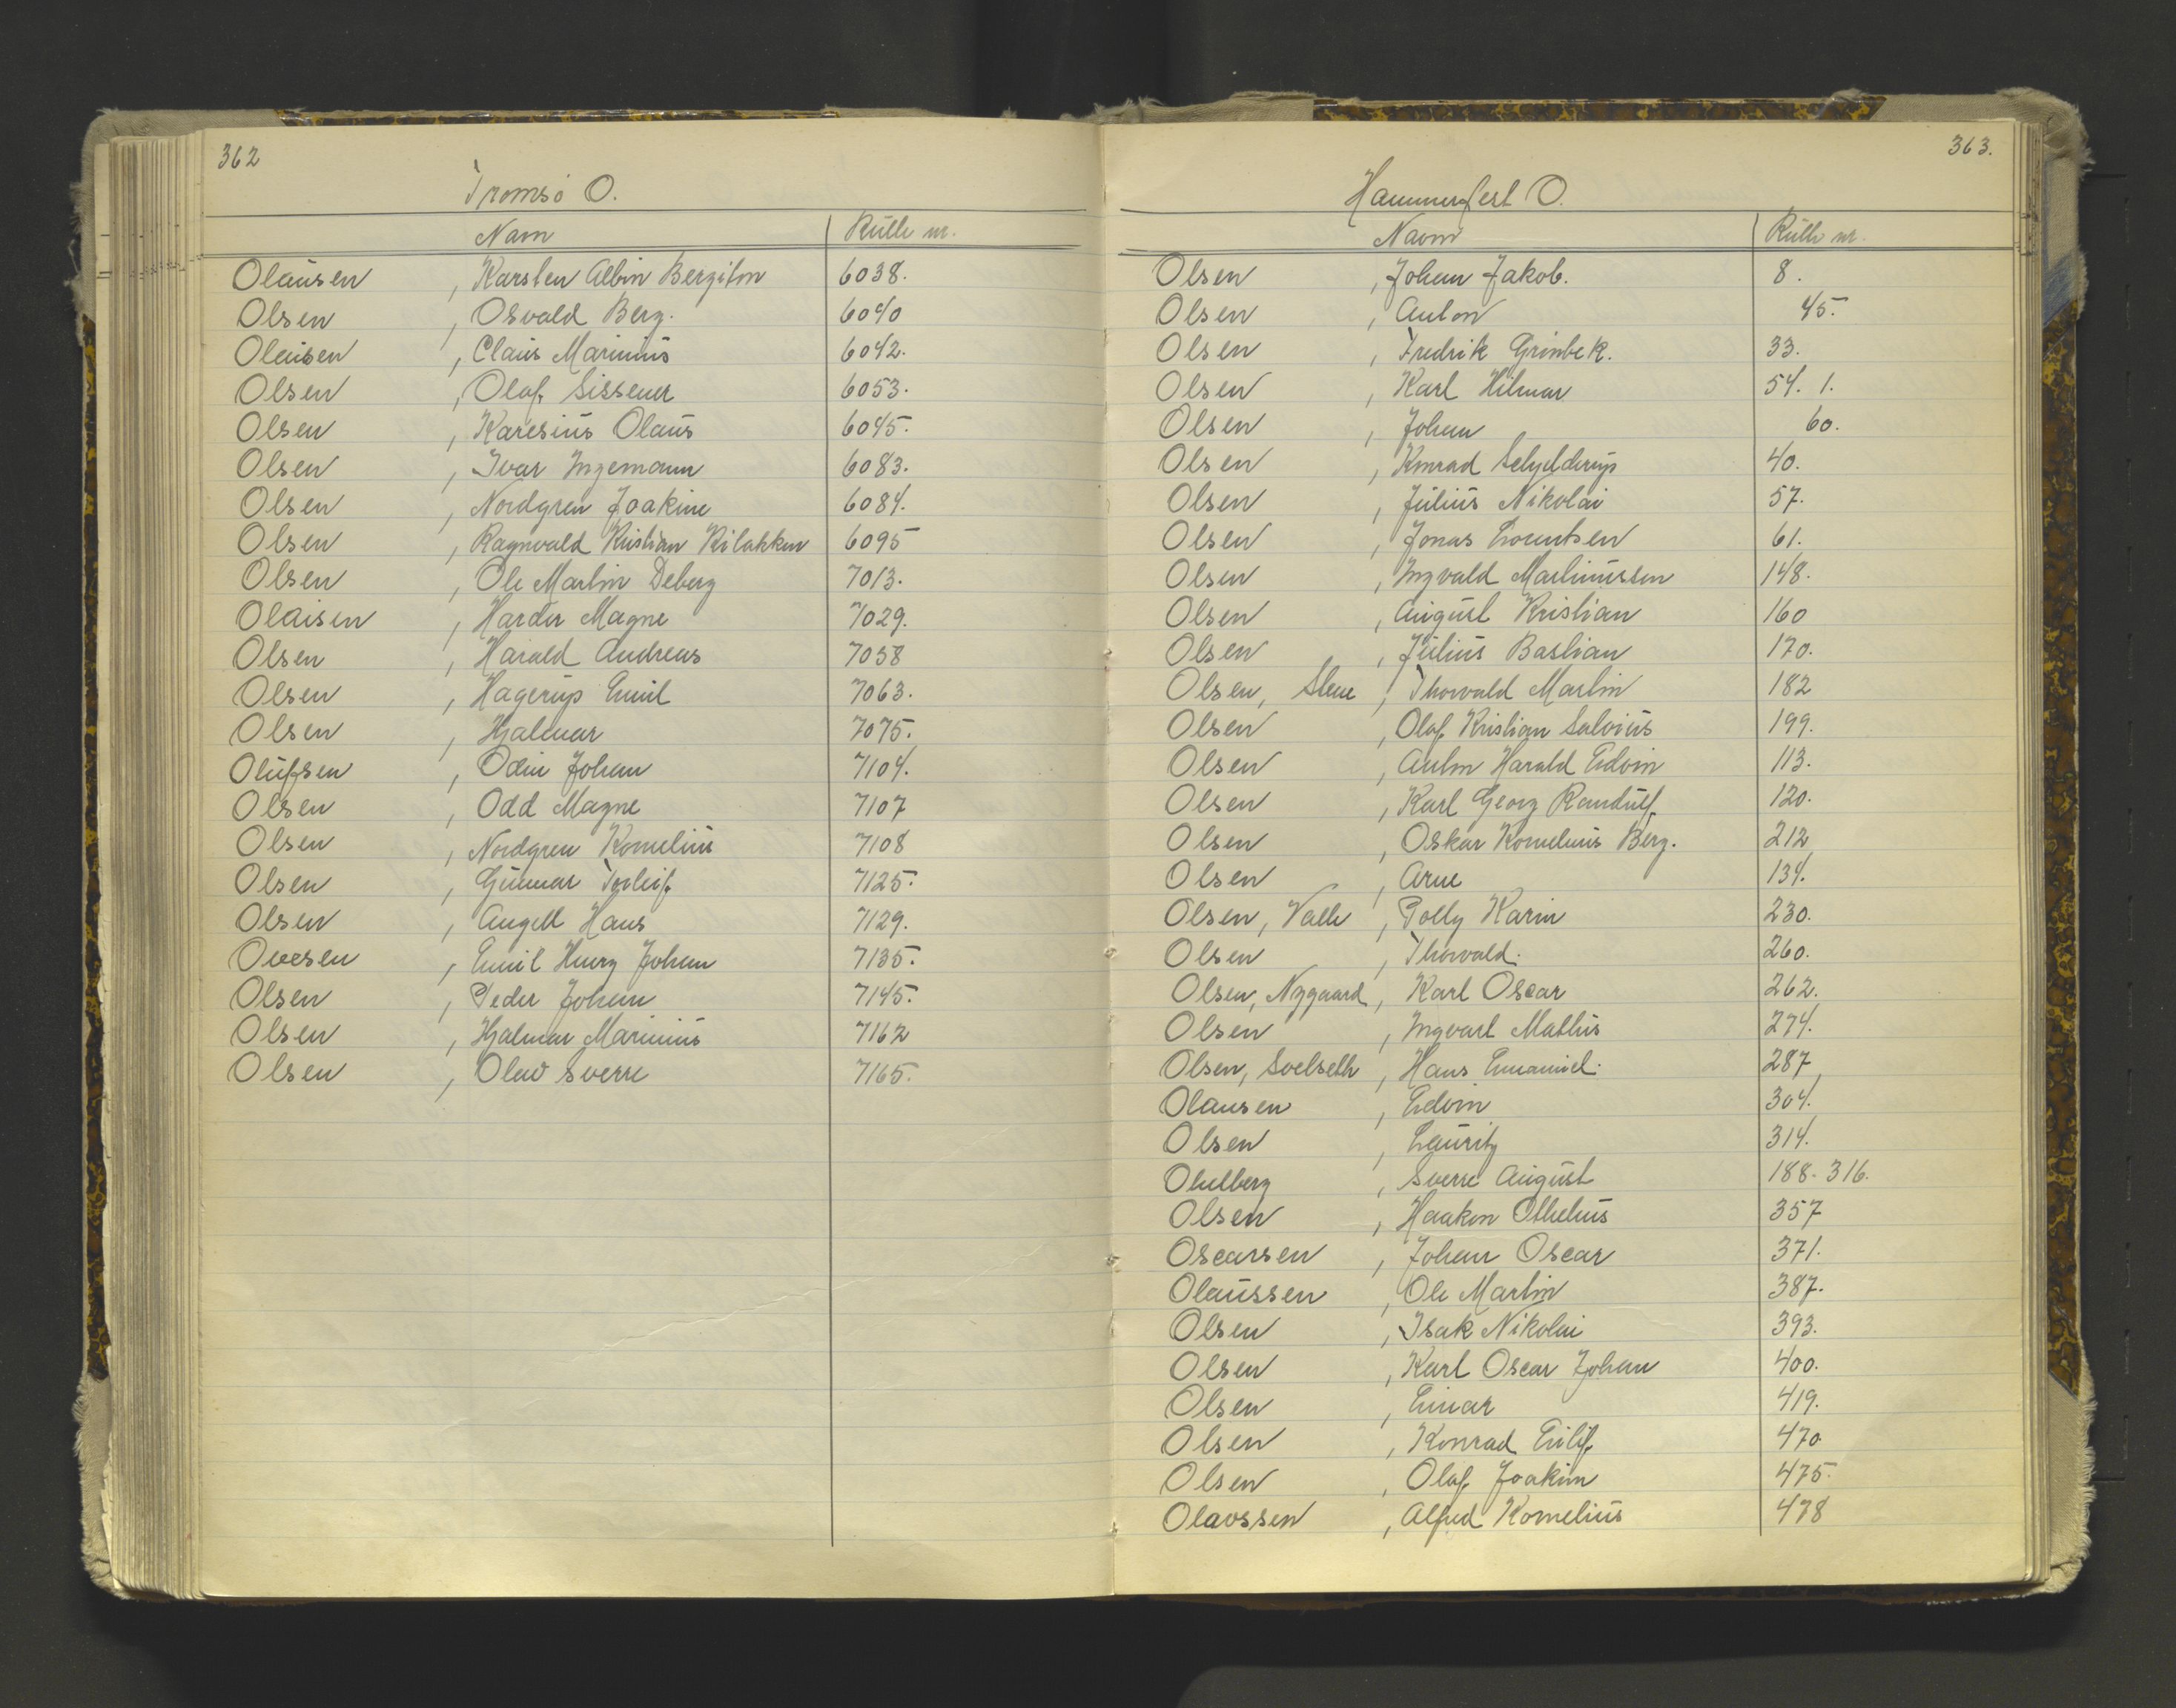 362
Tromsö O.
Navn Rulle nr.
Olausen , Karsten Albin Bergiton 6038.
Olsen , Osvald Berg. 6040
Olaisen , Claus Marinius 6042.
Olsen , Olaf Sissener 6053.
Olsen , Karesius Olaus 6045.
Olsen , Ivar Ingemann 6083.
Olsen , Nordgren Joakine 6084.
Olsen , Ragnvald Kristian Kilakken 6095
Olsen , Ole Martin Deberg 7013.
Olaisen , Harder Magne 7029.
Olsen , Harald Andreas 7058
Olsen , Hagerup Emil 7063.
Olsen , Hjalmar 7075.
Olufsen , Odin Johan 7104.
Olsen , Odd Magne 7107
Olsen , Nordgren Kornelius 7108
Olsen , Gunnar Torleif 7125.
Olsen , Angell Hans 7129.
Ovesen , Emil Henry Johan 7135.
Olsen , Peder Johan 7145.
Olsen , Hjalmar Marinius 7162
Olsen , Olav Sverre 7165.
363.
Hammerfest O.
Navn Rulle nr.
Olsen , Johan Jakob. 8.
Olsen , Anton 45.
Olsen , Fredrik Grinbek. 33.
Olsen , Karl Hilmar 54. 1.
Olsen , Johan 60.
Olsen , Konrad Schjelderup 40.
Olsen , Julius Nikolai 57.
Olsen , Jonas Lorentsen 61.
Olsen , Ingvald Martinussen 148.
Olsen , August Kristian 160
Olsen , Julius Bastian 170.
Olsen, Stene , Thorvald Martin 182
Olsen , Olaf Kristian Salvius 199.
Olsen , Anton Harald Edvin 113.
Olsen , Karl Georg Randulf 120.
Olsen , Oskar Kornelius Berg. 212
Olsen , Arne 134.
Olsen, Valle , Polly Karin 230.
Olsen , Thorvald. 260.
Olsen, Nygaard , Karl Oscar 262.
Olsen , Ingvart Mathis 274.
Olsen, Soelseth , Hans Emanuel. 287
Olausen , Edvin 304.
Olsen , Lauritz 314.
, Sverre August 188. 316.
Olsen , Haakon Othelius 357
Oscarsen , Johan Oscar 371.
Olaussen , Ole Martin 387.
Olsen , Isak Nikolai 393.
Olsen , Karl Oscar Johan 400.
Olsen , Einar 419.
Olsen , Konrad Eilif 470
Olsen , Olaf Joakim 475.
Olavssen , Alfred Kornelius 478